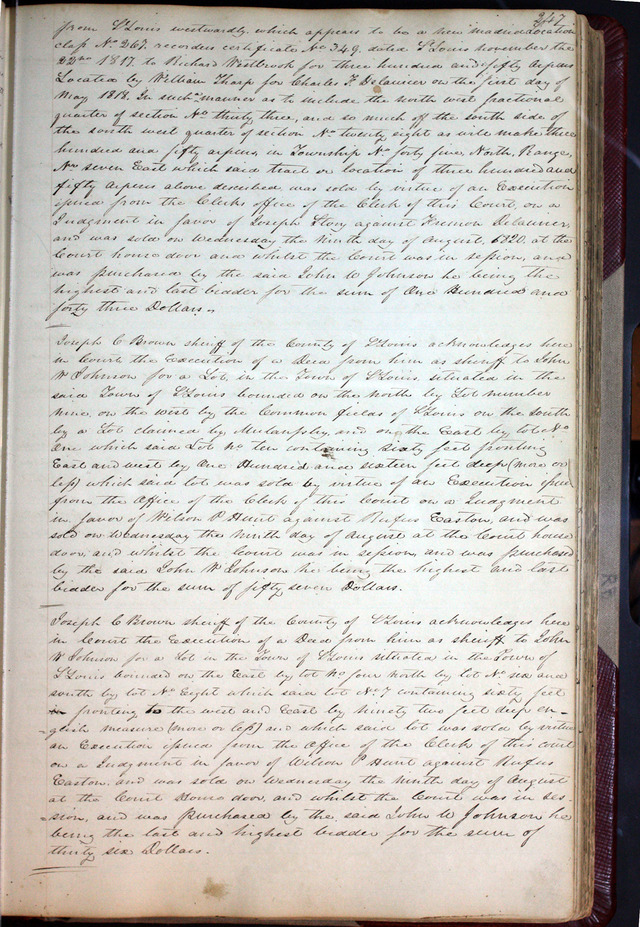 347
from St Louis westwardly, which appears to be a new madrid location
class No 267. recorders certificate No 349. dated St Louis november the
22nd 1817. to Richard Westbrook for three hundred and fifty arpens
Located by William Tharp for Charles F. Delaurier on the first day of
May 1818. In such manner as to include the north west fractional
quarter of section No thirty three, and so much off the south side of
the south west quarter of section No twenty eight as will make three
hundred and fifty arpens, in Township No forty five North, Range,
No seven East which said tract or location of three hundred and
fifty arpens above described was sold by virtue of an Execution
issued from the Clerks office of the Clerk of this Court, on a
Judgment in favor of Joseph Story against Delaurier,
and was sold on Wednesday the Ninth day of August, 1820. at the
Court house door and whilst the Court was in session, and
was purchased by the said John W Johnson he being the
highest and last bidder for the sum of One Hundred and
forty three Dollars.
Joseph C Brown sheriff of the County of St Louis acknowledges here
in Court the Execution of a Deed from him as sheriff to John
W Johnson for a Lot, in the Town of St Louis, situated in the
said Town of St Louis bounded on the North by Lot number
nine, on the west by the Common fields of St Louis on the south
by a Lot claimed by Mulanphy, and on the East by lot No
One which said Lot No ten containing sixty feet fronting
East and west by One Hundred and sixteen feet deep (more or
less) which said lot was sold by virtue of an Execution issued
from the Office of the Clerk of this Court on a Judgment
in favor of Wilson P Hunt against Rufus Easton, and was
sold on Wednesday the Ninth day of August at the Court house
door, and whilst the Court was in session, and was purchased
by the said John W Johnson he being the highest and last
bidder for the sum of fifty seven Dollars.
Joseph C Brown sheriff of the County of St Louis acknowledges here
in Court the Execution of a Deed from him as sheriff to John
W Johnson for a Lot in the Town of St Louis situated in the Town of
St Louis bounded on the East by lot No four North by lot No six and
south by lot No Eight which said lot No 7 containing sixty feet
fronting to the west and East by ninety two feet deep en-
glish measure (more or less) and which said lot was sold by virtue
an Execution issued from the Office of the Clerk of this court
on a Judgment in favor of Wilson P Hunt against Rufus
Easton. and was sold on Wednesday the Ninth day of August
at the Court House door, and whilst the Court was in ses-
sion, and was purchased by the, said John W Johnson he
being the last and highest bidder for the sum of
thirty six Dollars.